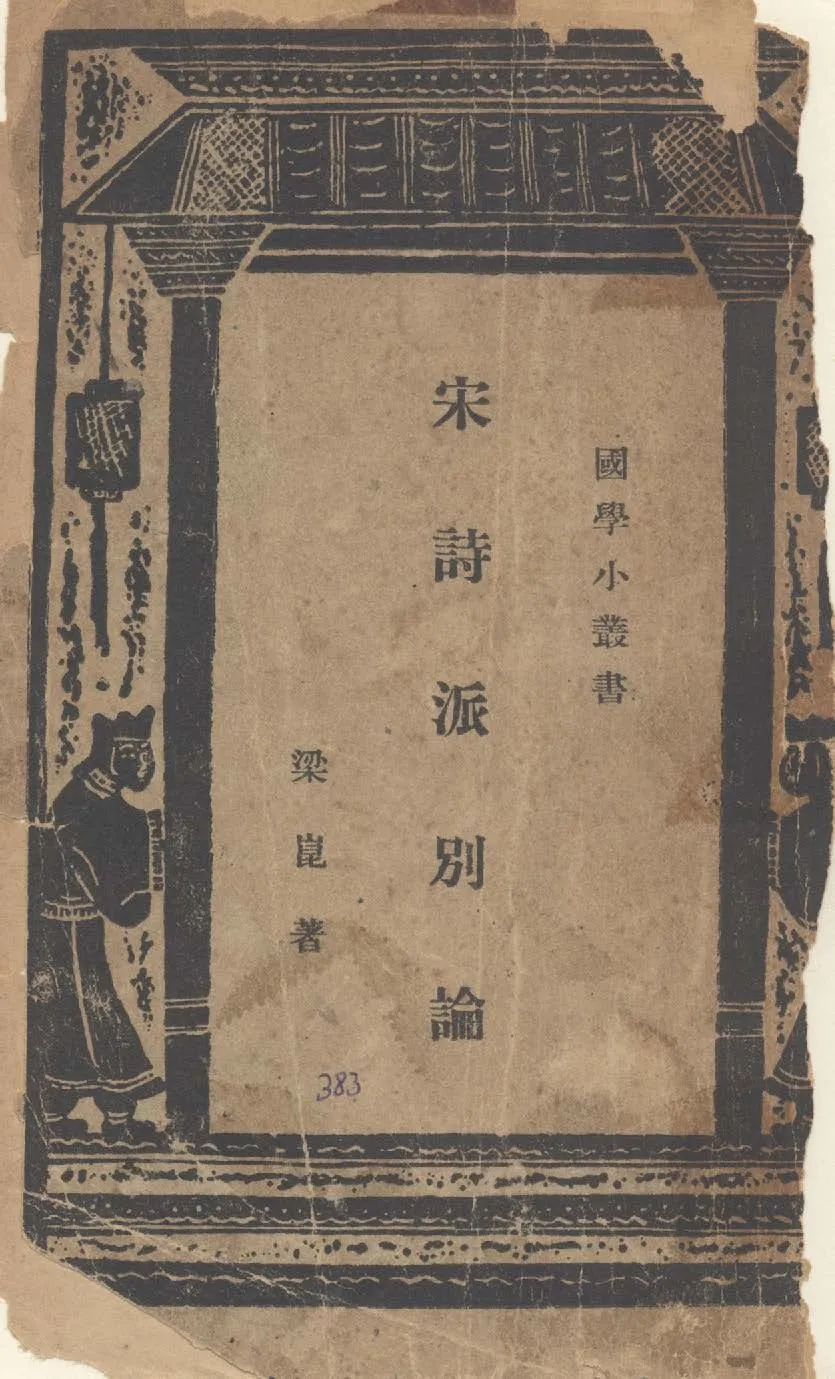 國學小叢書
宋詩派別論
梁崑著
383